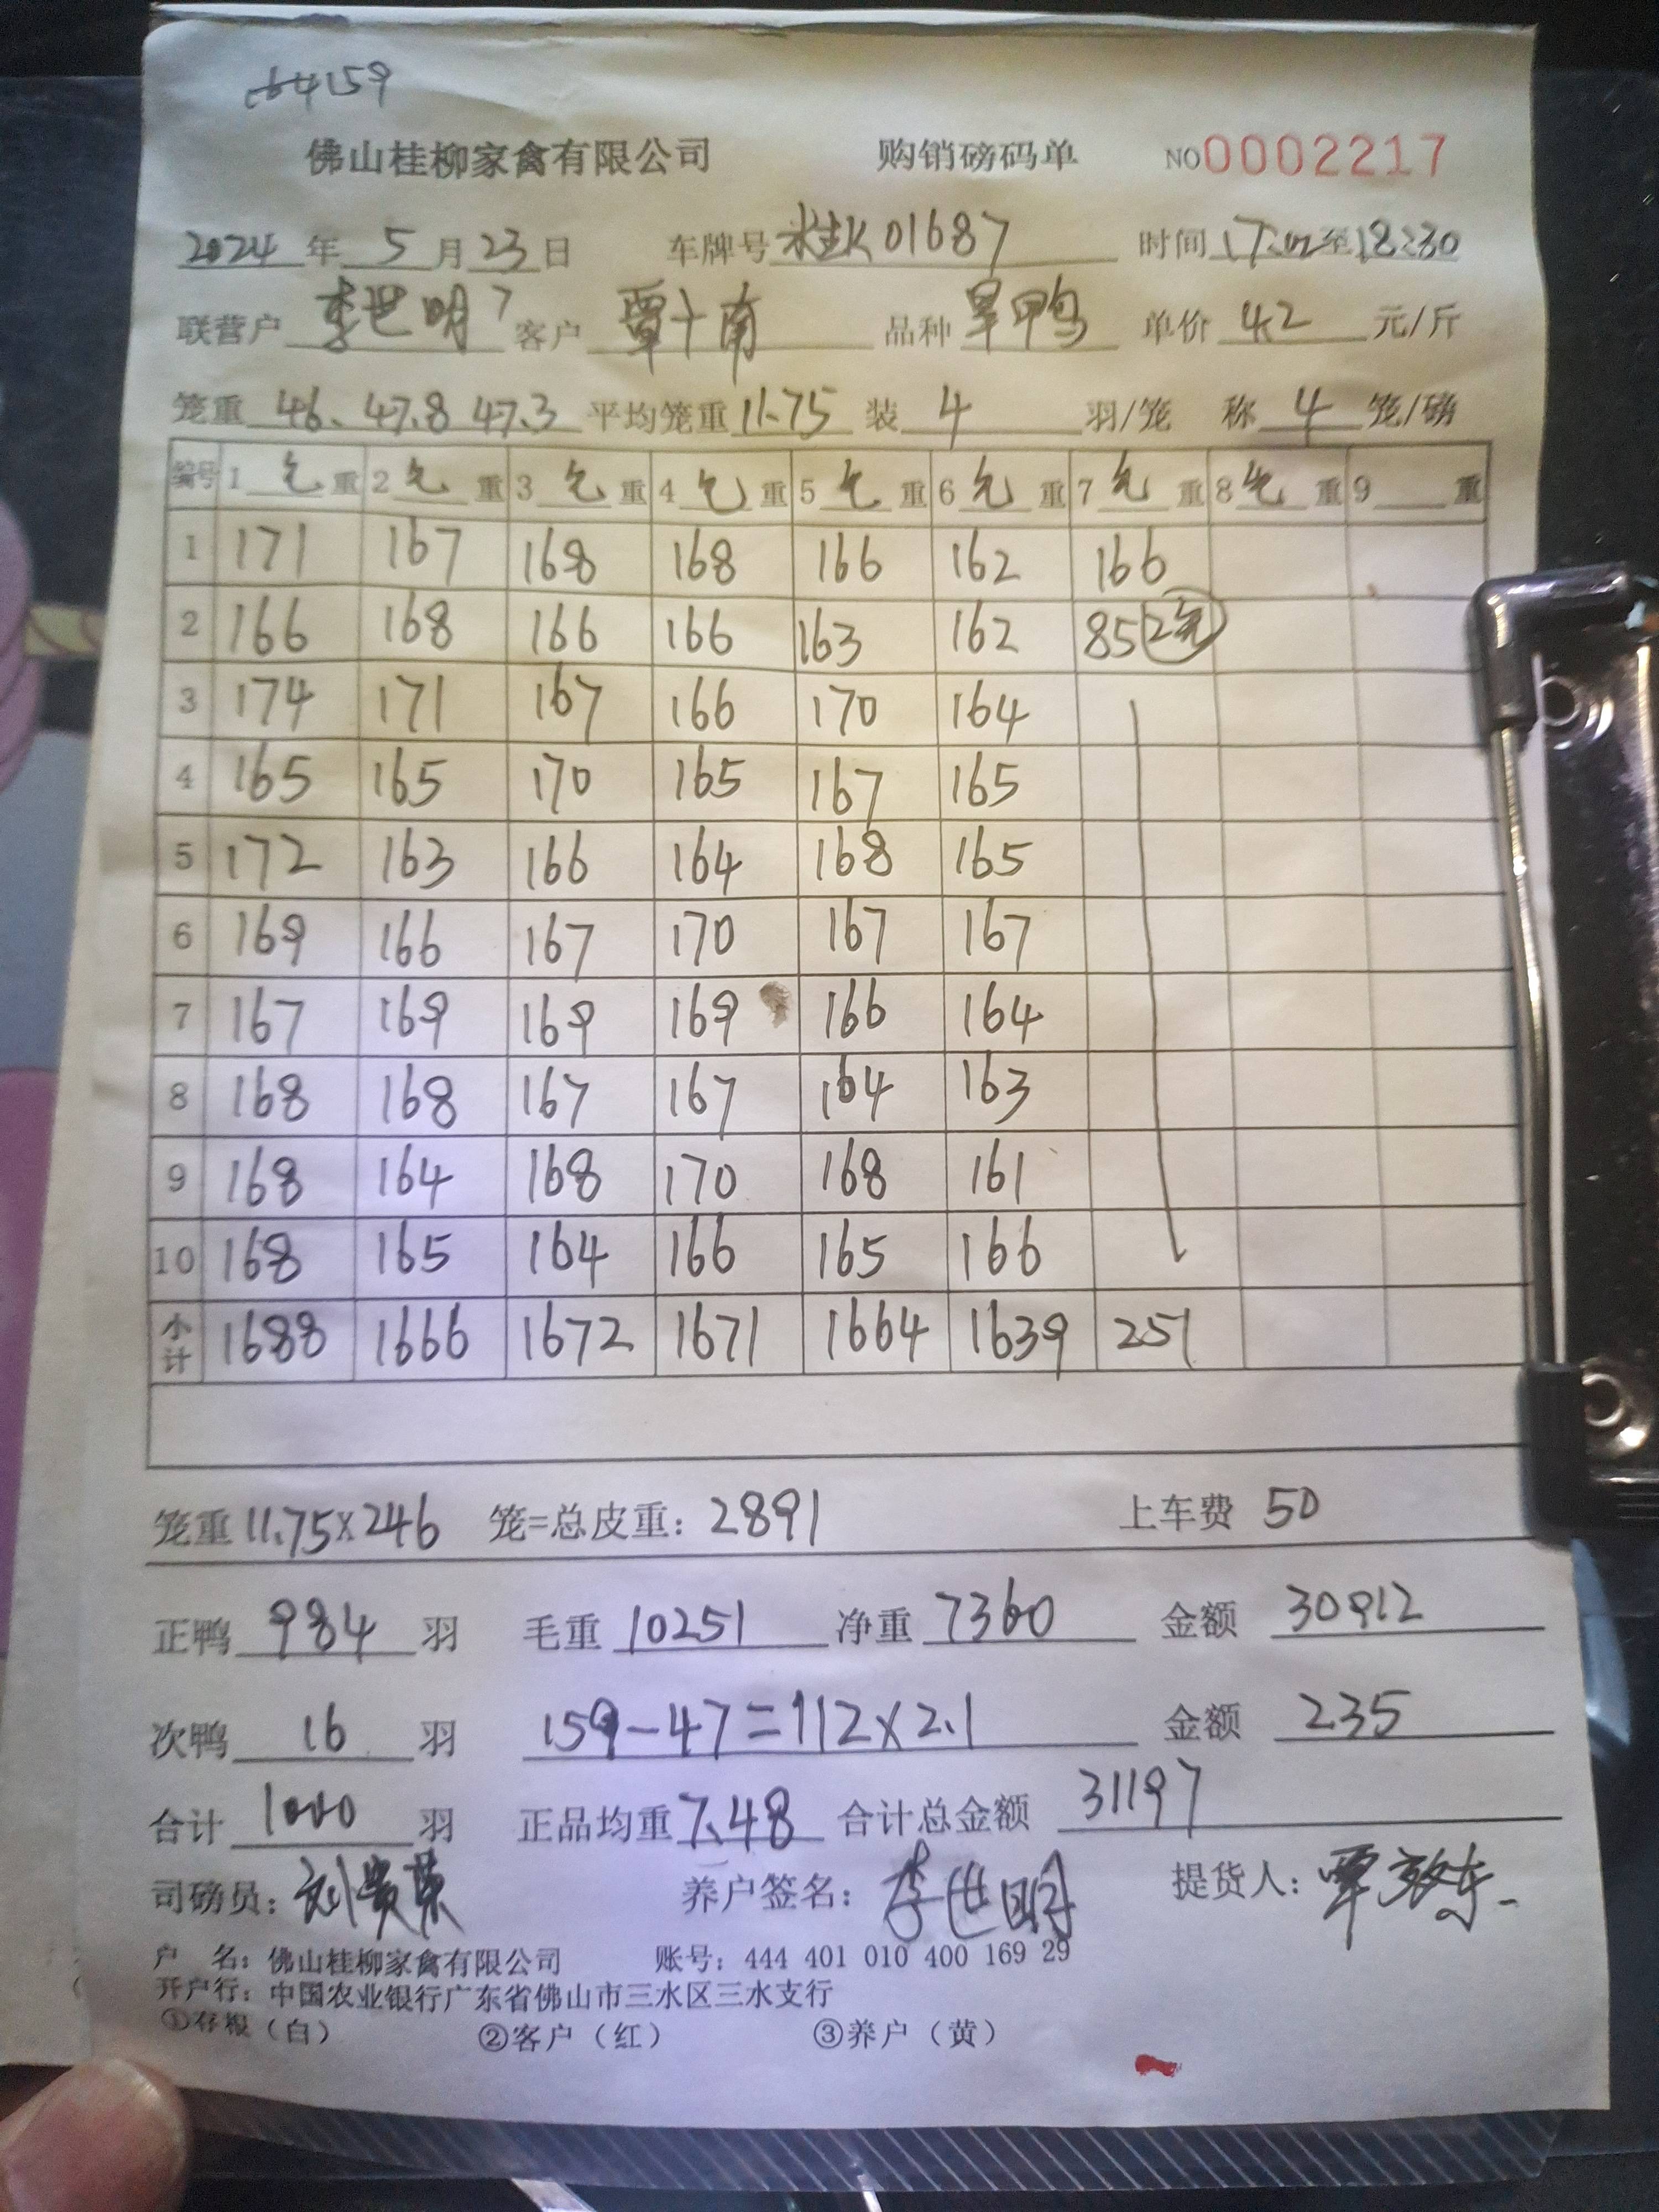 佛山桂柳家禽有限公司 购销磅码单 NO0002217
2024年5月23日 车牌号桂K01687 时间17:02至18:30
联营户李世明 客户覃十南 品种旱鸭 单价4.2元/斤
笼重46、47.8 47.3平均笼重11.75装4羽/笼 称4笼/磅
编号 1毛重 2毛重 3毛重 4毛重 5毛重 6毛重 7毛重 8毛重 9重
1 171 167 168 168 166 162 166
2 166 168 166 166 163 162 85 2笼
3 174 171 167 166 170 164
4 165 165 170 165 167 165
5 172 163 166 164 168 165
6 169 166 167 170 167 167
7 167 169 169 169 166 164
8 168 168 167 167 164 163
9 168 164 168 170 168 161
10 168 165 164 166 165 166
小计 1688 1666 1672 1671 1664 1639 251
笼重11.75×246 笼=总皮重：2891 上车费 50
正鸭984羽 毛重10251 净重7360 金额30912
次鸭16羽 159-47=112×2.1 金额235
合计1000羽 正品均重7.48 合计总金额31197
司磅员：刘贵荣 养户签名：李世明 提货人：覃
户 名：佛山桂柳家禽有限公司 账号：444 401 010 400 169 29
开户行：中国农业银行广东省佛山市三水区三水支行
①存根（白） ②客户（红） ③养户（黄）